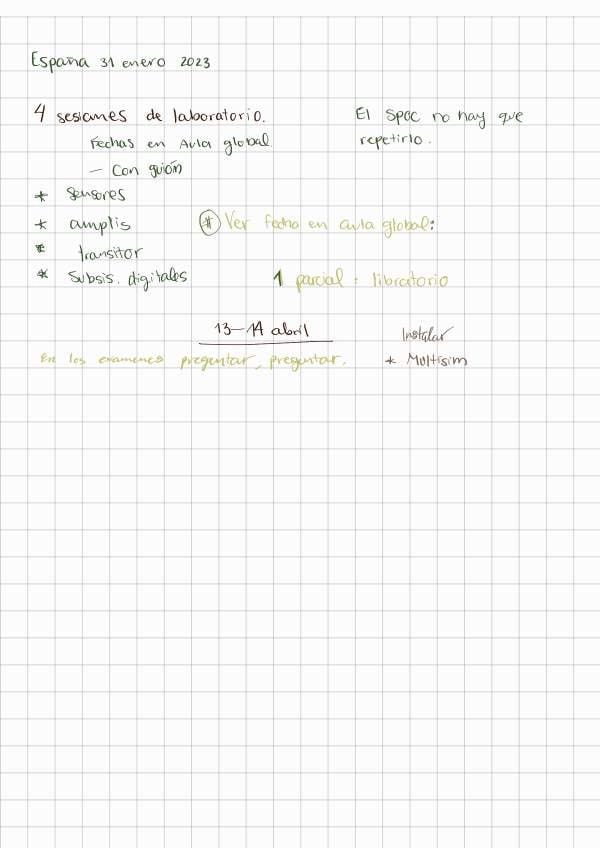 España 31 enero 2023
4 sesiones de laboratorio.
Fechas en Aula global
— Con guión
* Sensores
* amplis
* transitor
* Subsis. digitales
El SPOC no hay que
repetirlo.
# Ver fecha en aula global:
1 parcial : libratorio
13-14 abril
En los examenes preguntar, preguntar.
Instalar
* Multisim